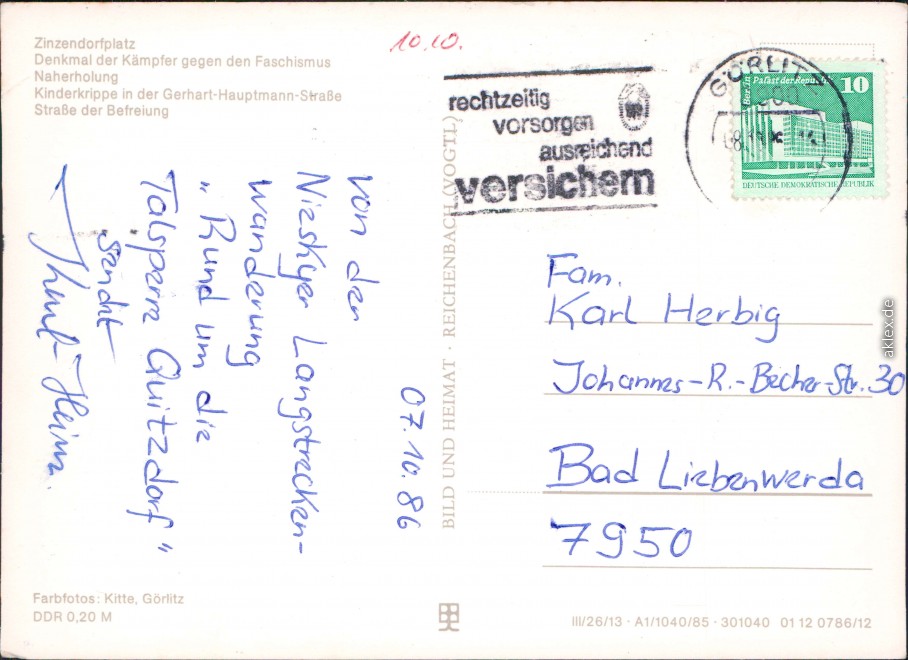 Zinzendorfplatz
Denkmal der Kämpfer gegen den Faschismus
Naherholung
Kinderkrippe in der Gerhart-Hauptmann-Straße
Straße der Befreiung
10.10.
rechtzeitig
vorsorgen
ausreichend
versichern
GÖRLITZ
Palast der Republik
10
DEUTSCHE DEMOKRATISCHE REPUBLIK
07.10.86
von der
Nieskyer Langstrecken-
wanderung
„Rund um die
Talsperre Quitzdorf"
sendet
Heinz
BILD UND HEIMAT · REICHENBACH (VOGTL)
Fam.
Karl Herbig
Johannes-R.-Becher-Str. 30
Bad Liebenwerda
7950
Farbfotos: Kitte, Görlitz
DDR 0,20 M
III/26/13 · A1/1040/85 · 301040 01 12 0786/12
aklex.de